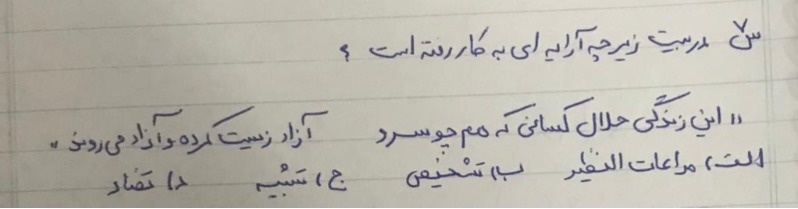 س۷ در بیت زیر چه آرایه ای به کار رفته است ؟
" این زندگی حلال کسانی که هم چو سرو آزاد زیست کرده و آزاد می روند "
الف) مراعات النظیر ب) تشخیص ج) تشبیه د) تضاد